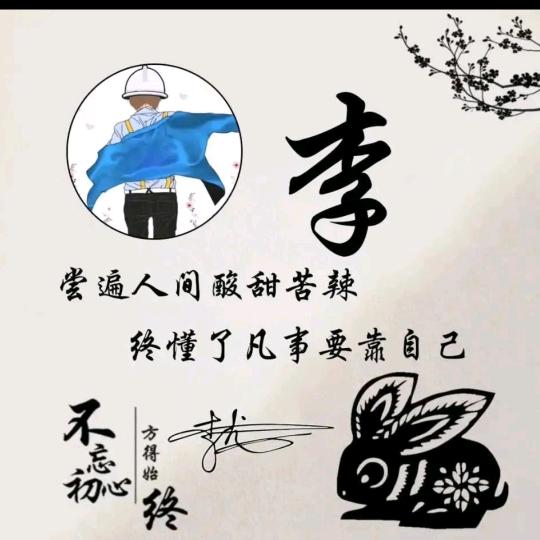 李
尝遍人间酸甜苦辣
终懂了凡事要靠自己
不忘初心
方得始终